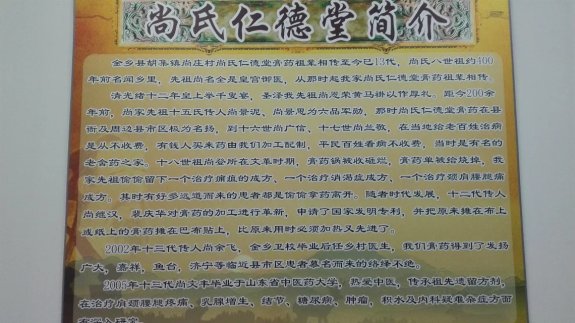 尚氏仁德堂简介
金乡县胡集镇尚庄村尚氏仁德堂膏药祖辈相传至今已13代，尚氏八世祖约400
年前名闻乡里，先祖尚名全是皇宫御医，从那时起我家尚氏仁德堂膏药祖辈相传。
清光绪十二年皇上举千叟宴，圣泽我先祖尚思荣黄马褂以作厚礼。距今200余
年前，尚家先祖十五氏传人尚景泥，尚景恩为六品军勋，那时尚氏仁德堂膏药在县
衙及周边县市区极为名扬，到十六世尚广信，十七世尚兰敬，在当地给老百姓治病
是从不收费，有钱人买来药由我们加工配制，平民百姓看病不收费，当时是有名的
老舍药之家。十八世祖尚登所在文革时期，膏药锅被收砸烂，膏药单被给烧掉，我
家先祖偷偷留下一个治疗痛疽的成方，一个治疗消渴症成方，一个治疗颈肩腰腿痛
成方。其时有好多远道而来的患者都是偷偷拿药离开。随者时代发展，十二代传人
尚继汉，裴庆华对膏药的加工进行革新，申请了国家发明专利，并把原来摊在布上
或纸上的膏药摊在巴布贴上，比原来用时必须加热又先进了。
2002年十三代传人尚余飞，金乡卫校毕业后任乡村医生，我们膏药得到了发扬
广大，嘉祥，鱼台，济宁等临近县市区患者慕名而来的络绎不绝。
2005年十三代尚文丰毕业于山东省中医药大学，热爱中医，传承祖先遗留方剂，
在治疗肩颈腰腿疼痛、乳腺增生、结节，糖尿病，肿瘤，积水及内科疑难杂症方面